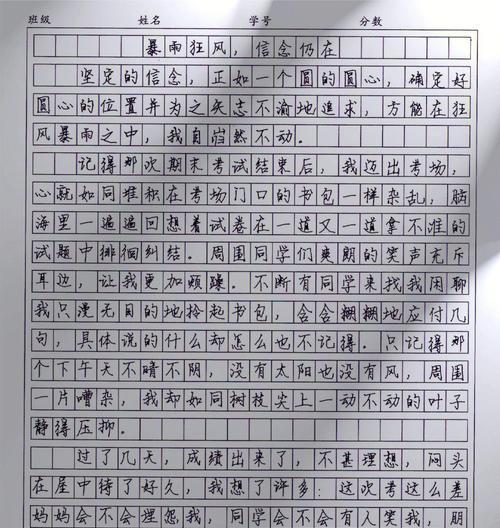 班级 姓名 学号 分数
暴雨狂风，信念仍在
坚定的信念，正如一个圆的圆心，确定好
圆心的位置并为之矢志不渝地追求，方能在狂
风暴雨之中，我自岿然不动。
记得那次期末考试结束后，我迈出考场，
心就如同堆积在考场门口的书包一样杂乱，脑
海里一遍遍回想着试卷在一道又一道拿不准的
试题中徘徊纠结。周围同学们爽朗的笑声充斥
耳边，让我更加烦躁。不断有同学来找我闲聊
我只漫无目的地拎起书包，含含糊糊地应付几
句，具体说的什么却怎么也不记得。只记得那
个下午天不晴不阴，没有太阳也没有风，周围
一片嘈杂，我却如同树枝尖上一动不动的叶子
静得压抑。
过了几天，成绩出来了，不甚理想，闷头
在屋中待了好久，我想了许多：这次考这么差
妈妈会不会埋怨我，同学会不会有人笑我，朋